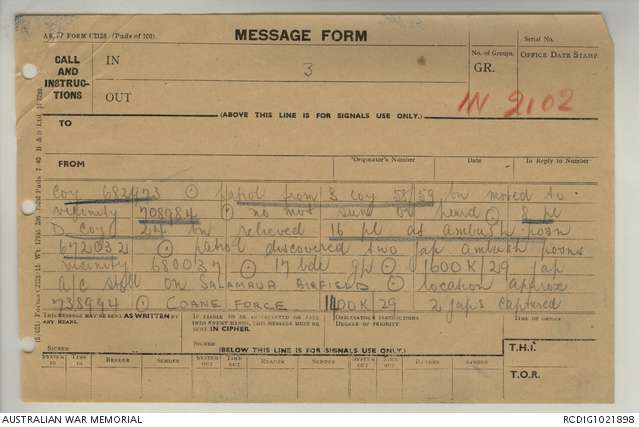 ARMY FORM C2128 (Pads of 100)
MESSAGE FORM
Serial No.
CALL AND INSTRUCTIONS
IN
3
OUT
No. of Groups.
GR.
OFFICE DATE STAMP
IN 2102
(ABOVE THIS LINE IS FOR SIGNALS USE ONLY.)
TO
FROM
Originator's Number
Date
In Reply to Number
Coy 682973 ⊙ patrol from B coy 58/59 bn moved to
vicinity 708984 ⊙ no mov seen or heard ⊙ 8 pl
D coy 24 bn relieved 16 pl at ambush posn
672032 ⊙ patrol discovered two jap ambush posns
vicinity 680037 ⊙ 17 bde gp ⊙ 1600K/29 jap
a/c still on SALAMAUA AIRFIELD ⊙ location approx
738994 ⊙ COANE FORCE 1400K/29 2 japs captured
THIS MESSAGE MAY BE SENT AS WRITTEN BY ANY MEANS.
IF LIABLE TO BE INTERCEPTED OR FALL INTO ENEMY HANDS, THIS MESSAGE MUST BE SENT IN CIPHER.
ORIGINATOR'S INSTRUCTIONS
DEGREE OF PRIORITY
TIME OF ORIGIN
SIGNED
SIGNED
(BELOW THIS LINE IS FOR SIGNALS USE ONLY.)
T.H.I.
SYSTEM IN
TIME IN
READER
SENDER
SYSTEM OUT
TIME OUT
READER
SENDER
SYSTEM OUT
TIME OUT
READER
SENDER
T.O.R.
AUSTRALIAN WAR MEMORIAL
RCDIG1021898